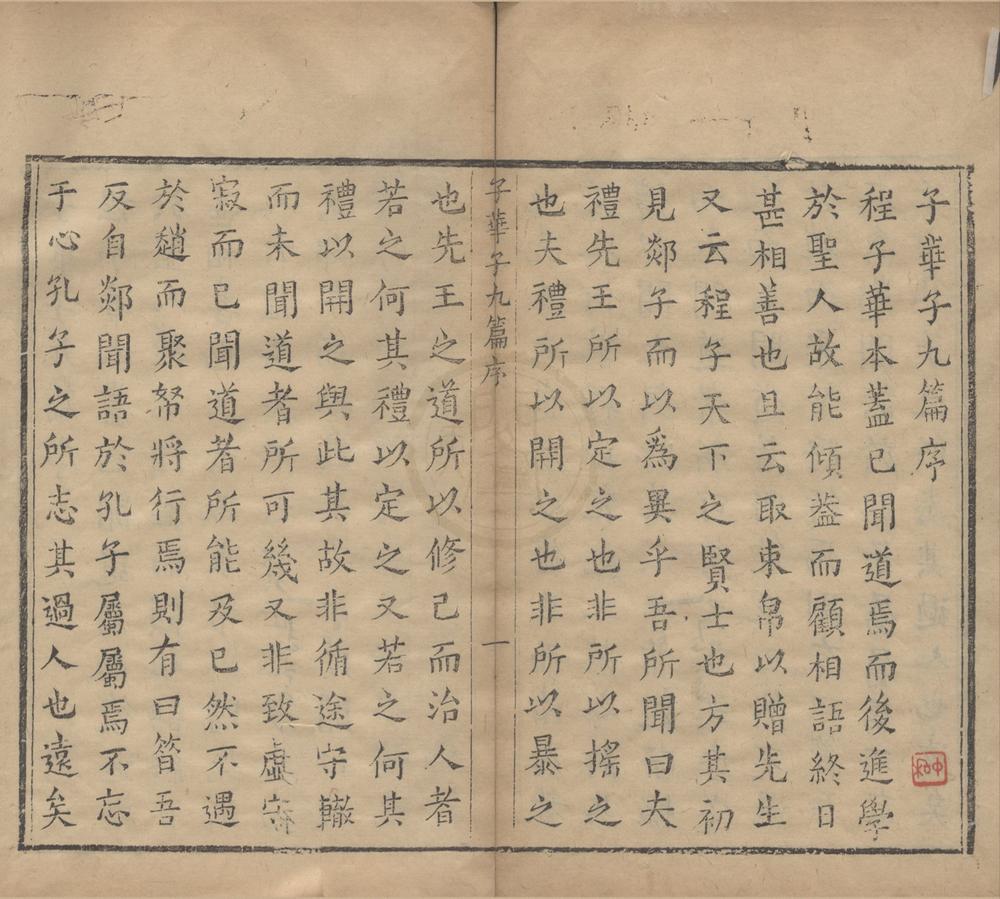 子華子九篇序
程子華本蓋已聞道焉而後進學
於聖人故能傾蓋而顧相語終日
甚相善也且云取束帛以贈先生
又云程子天下之賢士也方其初
見郯子而以爲異乎吾所聞曰夫
禮先王所以定之也非所以搖之
也夫禮所以開之也非所以暴之
子華子九篇序
一
也先王之道所以修己而治人者
若之何其禮以定之又若之何其
禮以開之與此其故非循途守轍
而未聞道者所可幾又非致虛守
寂而已聞道者所能及已然不遇
於趙而聚帑將行焉則有曰昝吾
反自郯聞語於孔子屬屬焉不忘
于心孔子之所志其過人也遠矣